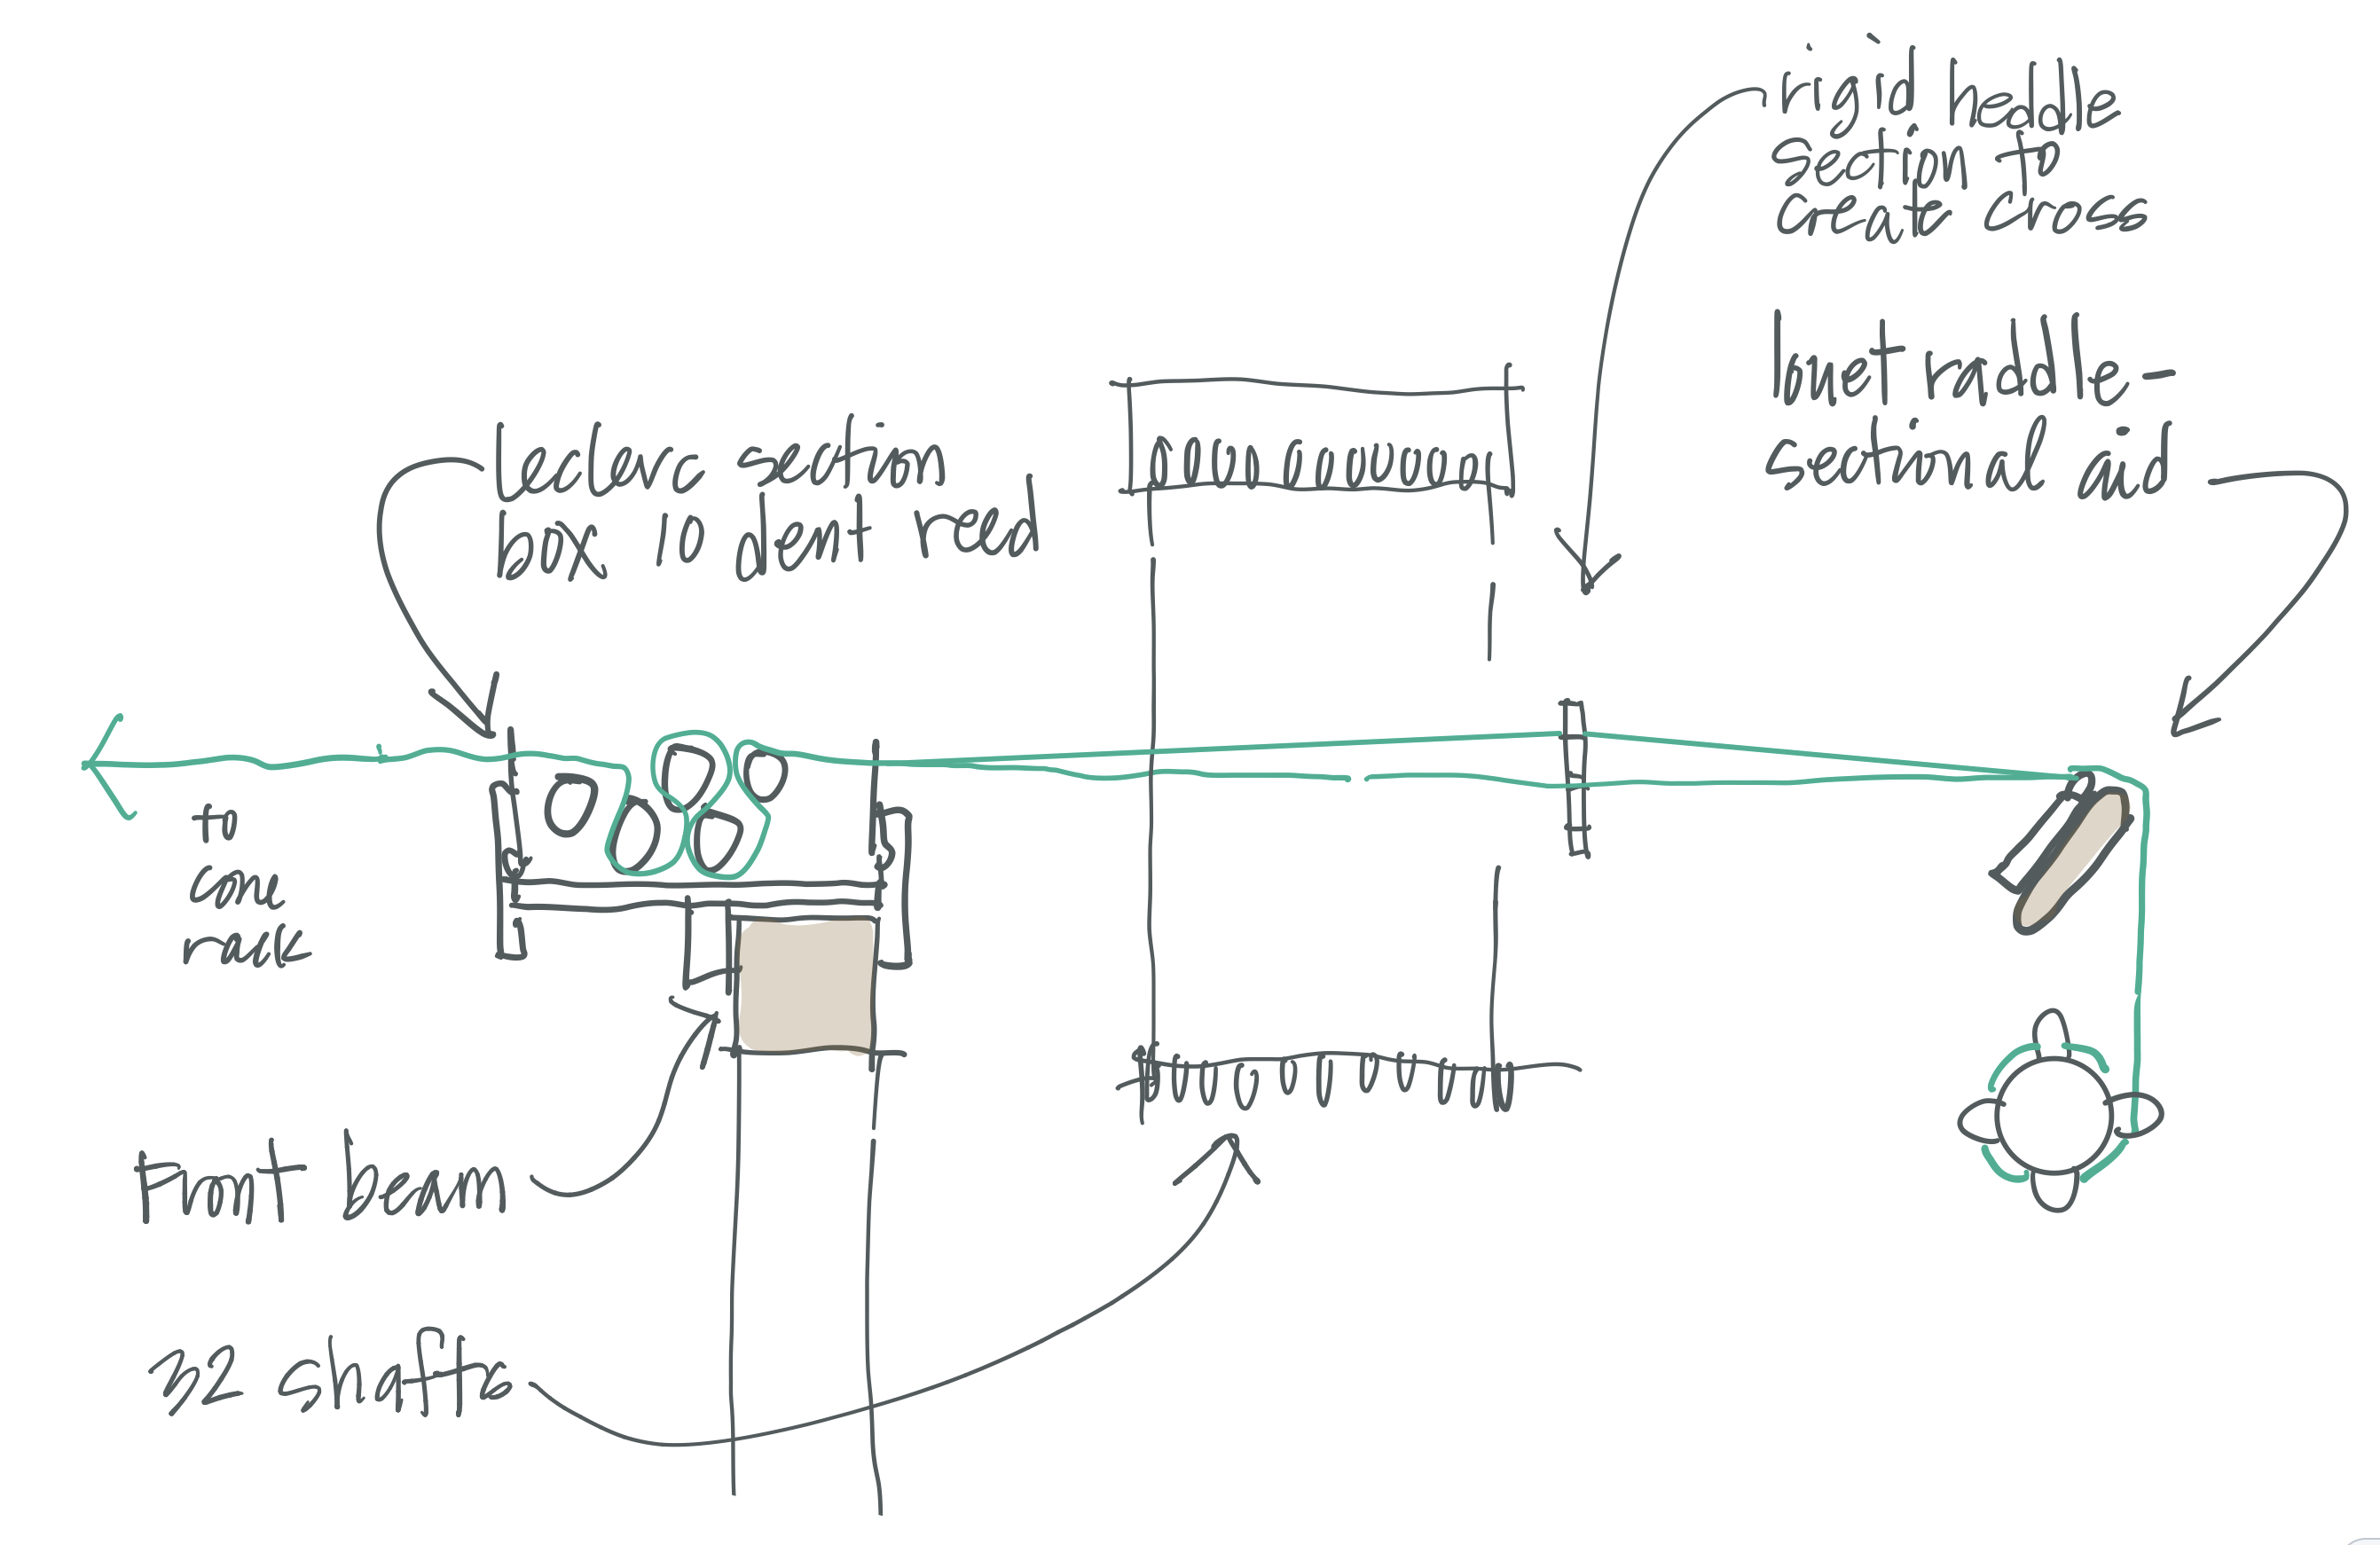 rigid heddle
section to
create cross
but raddle -
sectional aid
leclerc section
box 10 dent reed
to
cone
rack
front beam
32 shafts